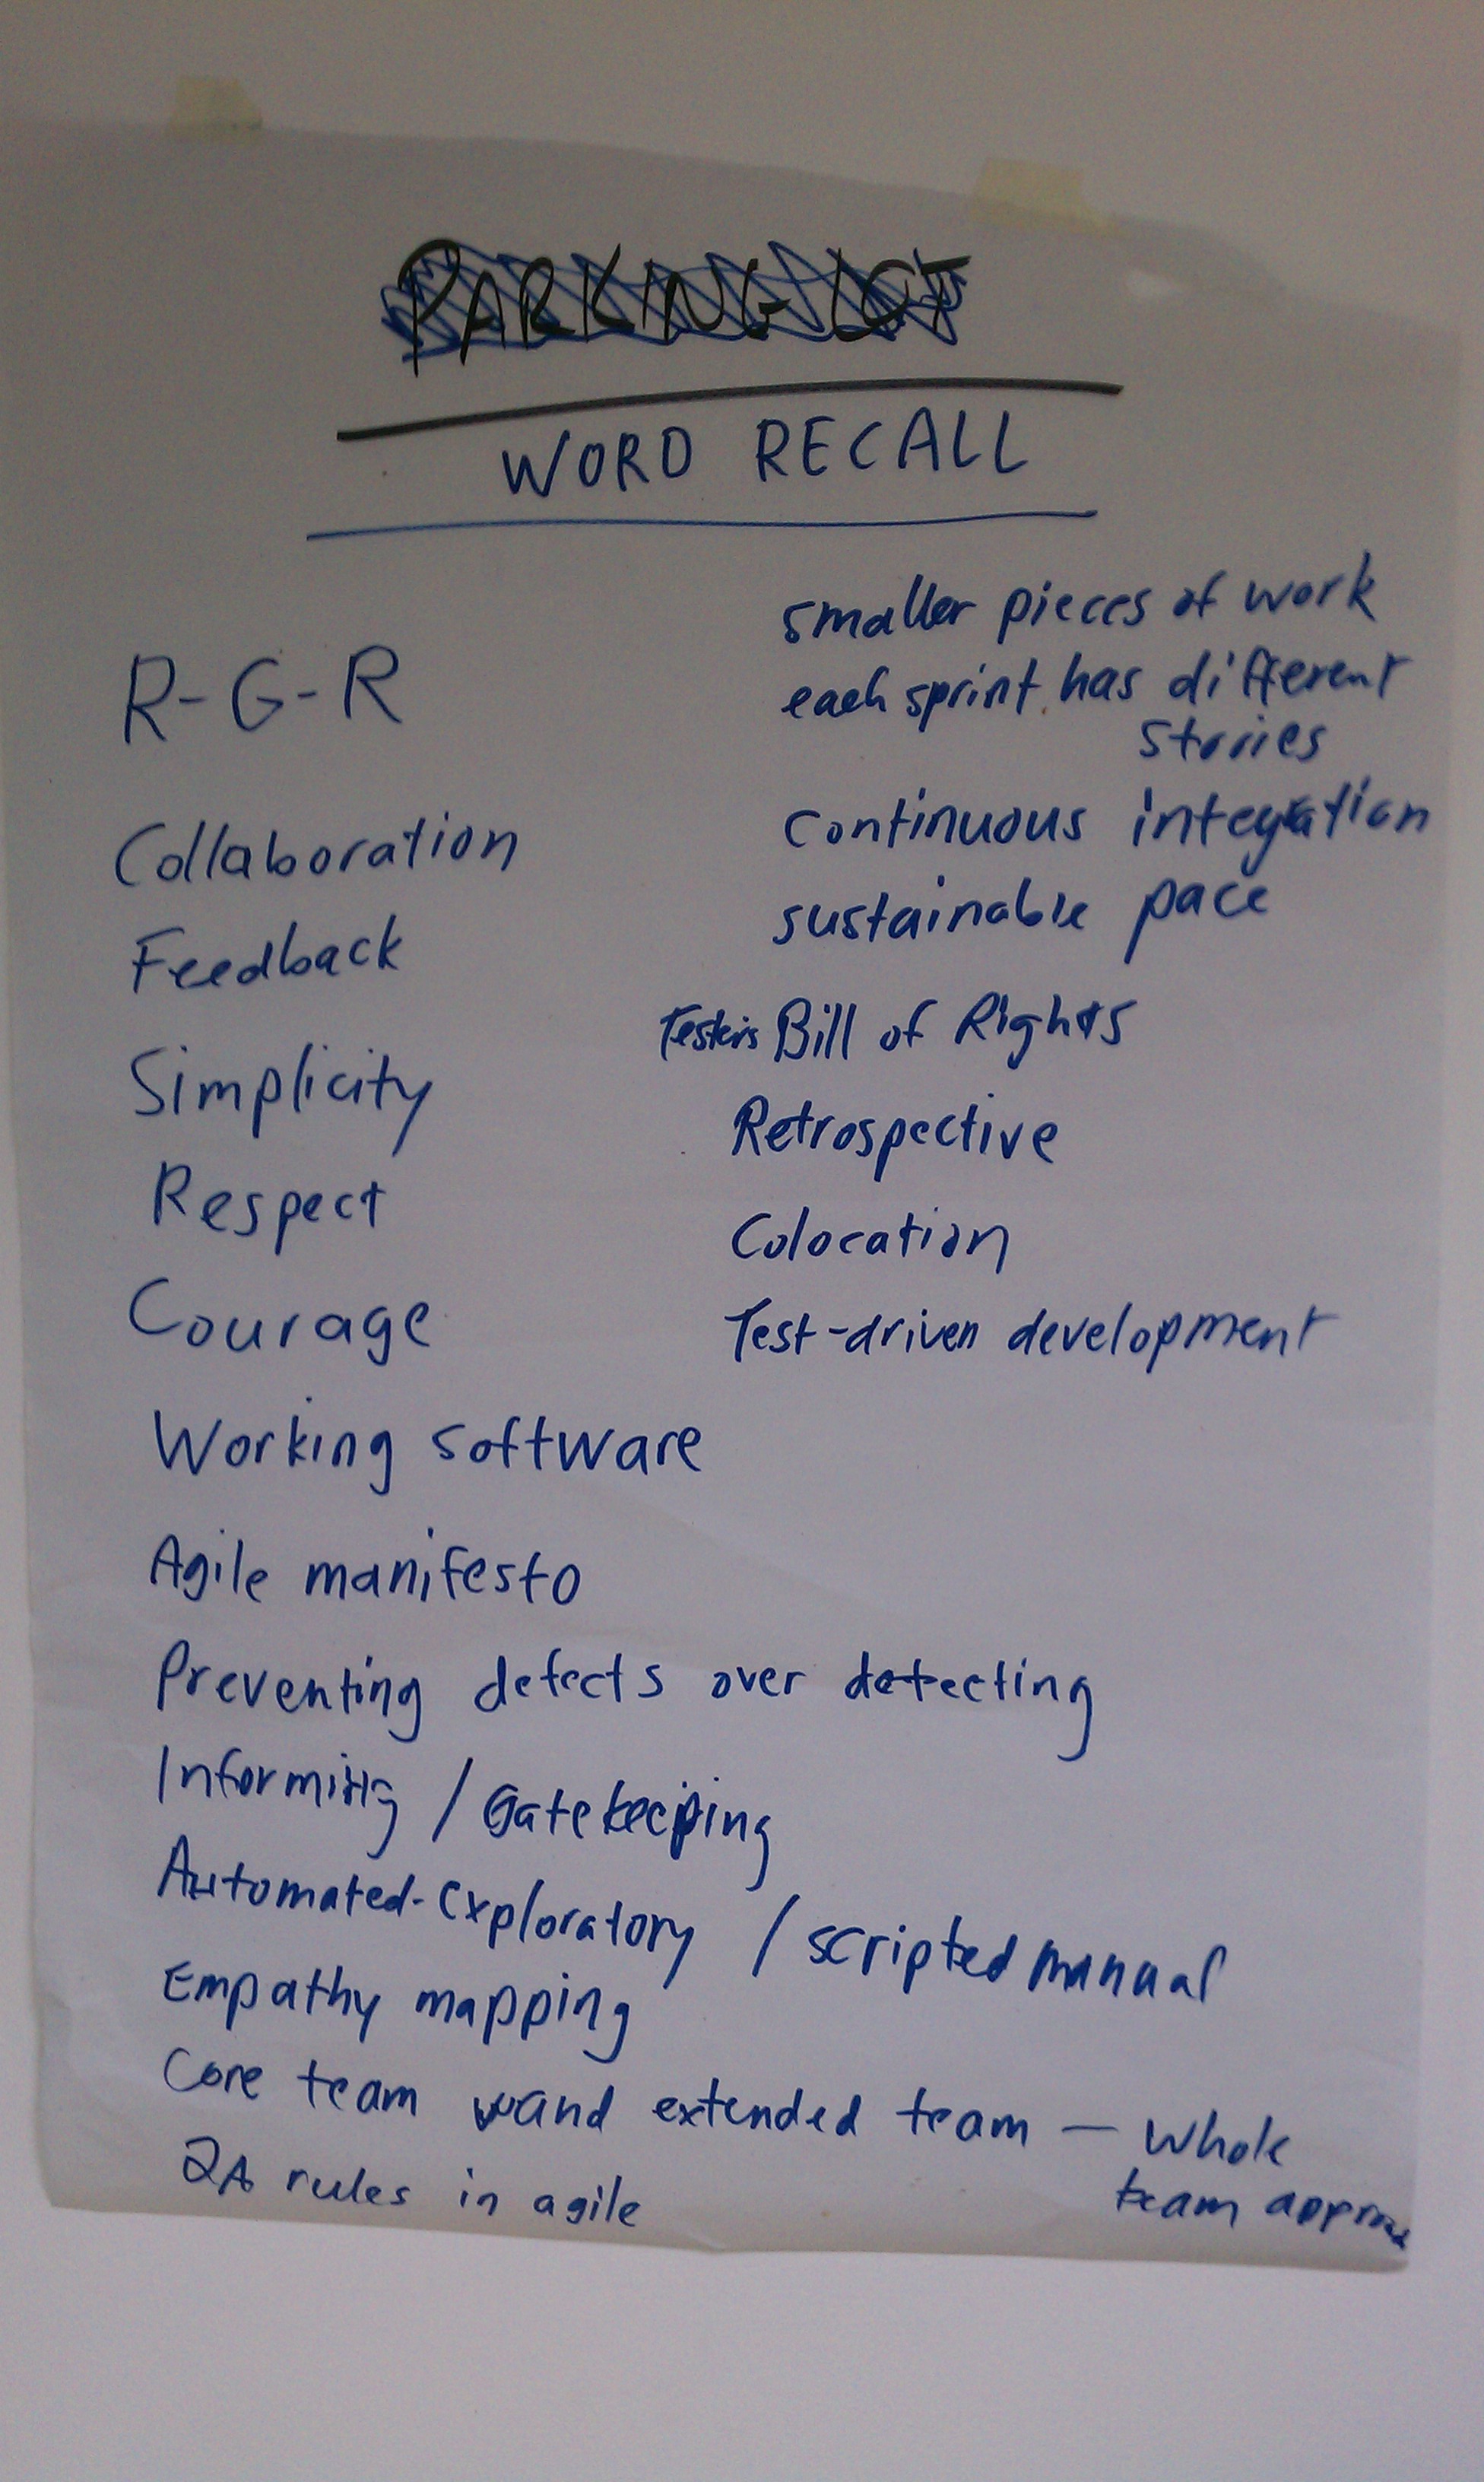 PARKING LOT
WORD RECALL
R-G-R
Collaboration
Feedback
Simplicity
Respect
Courage
Working software
Agile manifesto
Preventing defects over detecting
Informing / Gatekeeping
Automated-Exploratory / scripted manual
Empathy mapping
Core team and extended team — whole
team
QA rules in agile
smaller pieces of work
each sprint has different
stories
continuous integration
sustainable pace
Tester's Bill of Rights
Retrospective
Colocation
Test-driven development